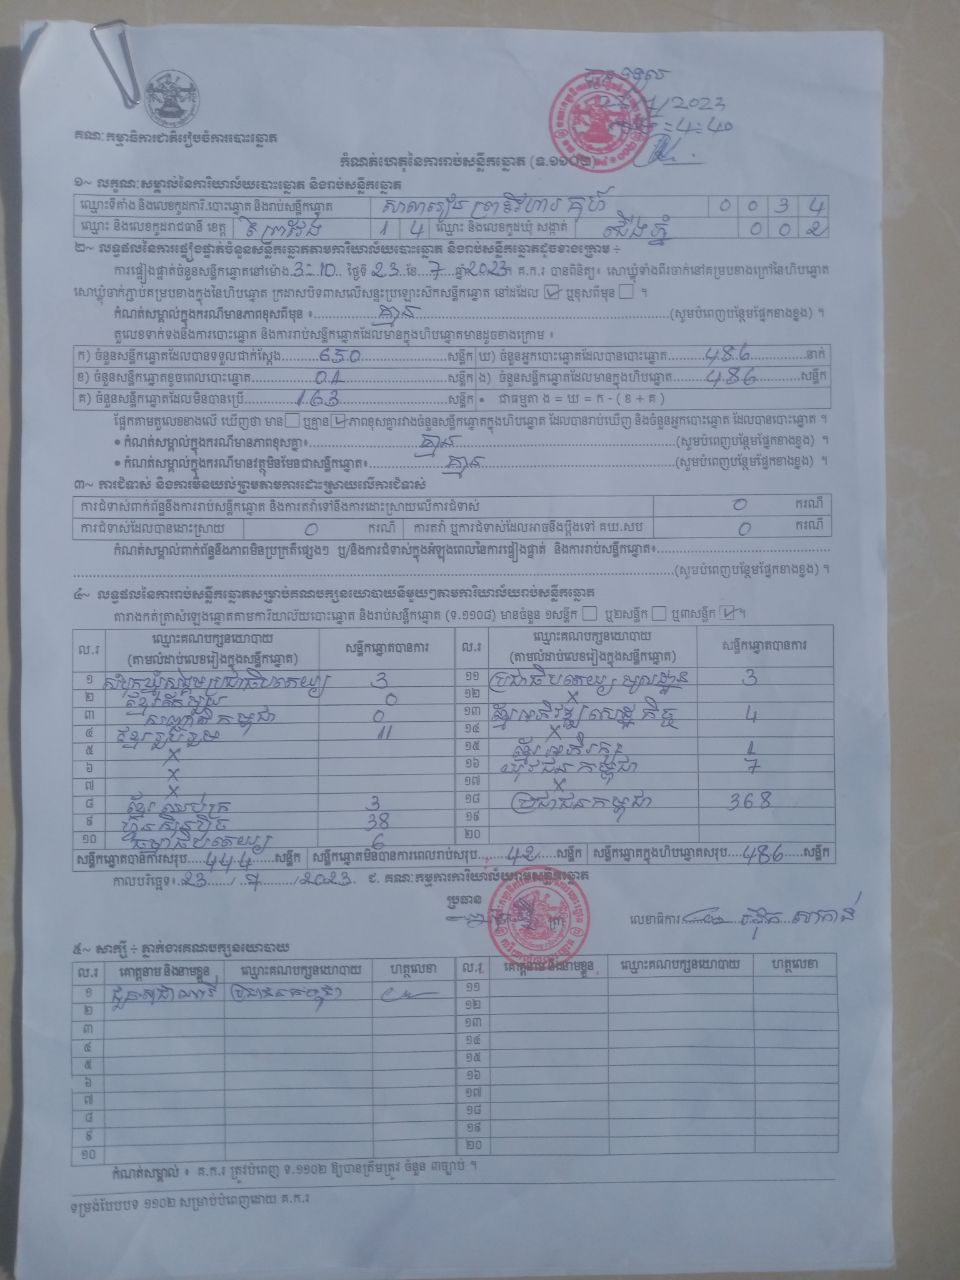 បានទទួល
23/7/2023
ម៉ោង 4:40
គណៈកម្មាធិការជាតិរៀបចំការបោះឆ្នោត
កំណត់ហេតុនៃការរាប់សន្លឹកឆ្នោត (ទ.១១០២)
១~ លក្ខណៈសម្គាល់នៃការិយាល័យបោះឆ្នោត និងរាប់សន្លឹកឆ្នោត
ឈ្មោះទីតាំង និងលេខកូដការិ.បោះឆ្នោត និងរាប់សន្លឹកឆ្នោត សាលារៀន ព្រះវិហារ គុហ៍ 0 0 3 4
ឈ្មោះ និងលេខកូដរាជធានី ខេត្ត ព្រៃវែង 1 4 ឈ្មោះ និងលេខកូដឃុំ សង្កាត់ ជើងភ្នំ 0 0 2
២~ លទ្ធផលនៃការផ្ទៀងផ្ទាត់ចំនួនសន្លឹកឆ្នោតតាមការិយាល័យបោះឆ្នោត និងរាប់សន្លឹកឆ្នោតដូចខាងក្រោម ÷
ការផ្ទៀងផ្ទាត់ចំនួនសន្លឹកឆ្នោតនៅម៉ោង 3:10 ថ្ងៃទី 23 ខែ 7 ឆ្នាំ 2023 គ.ក.រ បានពិនិត្យ៖ សោឃ្លុំទាំងពីរចាក់នៅគម្របខាងក្រៅនៃហិបឆ្នោត
សោឃ្លុំចាក់ភ្ជាប់គម្របខាងក្នុងនៃហិបឆ្នោត ក្រដាសបិទពាសលើសន្ទះប្រឡោះស៊កសន្លឹកឆ្នោត នៅដដែល ☑ ឬខុសពីមុន ☐ ។
កំណត់សម្គាល់ក្នុងករណីមានភាពខុសពីមុន ៖ គ្មាន (សូមបំពេញបន្ថែមផ្នែកខាងខ្នង) ។
តួលេខទាក់ទងនឹងការបោះឆ្នោត និងការរាប់សន្លឹកឆ្នោតដែលមានក្នុងហិបឆ្នោតមានដូចខាងក្រោម ៖
ក) ចំនួនសន្លឹកឆ្នោតដែលបានទទួលជាក់ស្តែង 650 សន្លឹក ឃ) ចំនួនអ្នកបោះឆ្នោតដែលបានបោះឆ្នោត 486 នាក់
ខ) ចំនួនសន្លឹកឆ្នោតខូចពេលបោះឆ្នោត 01 សន្លឹក ង) ចំនួនសន្លឹកឆ្នោតដែលមានក្នុងហិបឆ្នោត 486 សន្លឹក
គ) ចំនួនសន្លឹកឆ្នោតដែលមិនបានប្រើ 163 សន្លឹក • ជាធម្មតា ង = ឃ = ក - ( ខ + គ )
ផ្អែកតាមតួលេខខាងលើ ឃើញថា មាន ☐ ឬគ្មាន ☑ ភាពខុសគ្នារវាងចំនួនសន្លឹកឆ្នោតក្នុងហិបឆ្នោត ដែលបានរាប់ឃើញ និងចំនួនអ្នកបោះឆ្នោត ដែលបានបោះឆ្នោត ។
• កំណត់សម្គាល់ក្នុងករណីមានភាពខុសគ្នា៖ គ្មាន (សូមបំពេញបន្ថែមផ្នែកខាងខ្នង) ។
• កំណត់សម្គាល់ក្នុងករណីមានវត្ថុមិនមែនជាសន្លឹកឆ្នោត៖ គ្មាន (សូមបំពេញបន្ថែមផ្នែកខាងខ្នង) ។
៣~ ការជំទាស់ និងការមិនយល់ព្រមតាមការដោះស្រាយលើការជំទាស់
ការជំទាស់ពាក់ព័ន្ធនឹងការរាប់សន្លឹកឆ្នោត និងការតវ៉ាទៅនឹងការដោះស្រាយលើការជំទាស់ 0 ករណី
ការជំទាស់ដែលបានដោះស្រាយ 0 ករណី ការតវ៉ា ឬការជំទាស់ដែលអាចនឹងប្តឹងទៅ គឃ.សប 0 ករណី
កំណត់សម្គាល់ពាក់ព័ន្ធនឹងភាពមិនប្រក្រតីផ្សេងៗ ឬ/និងការជំទាស់ក្នុងអំឡុងពេលនៃការផ្ទៀងផ្ទាត់ និងការរាប់សន្លឹកឆ្នោត៖
(សូមបំពេញបន្ថែមផ្នែកខាងខ្នង) ។
៤~ លទ្ធផលនៃការរាប់សន្លឹកឆ្នោតសម្រាប់គណបក្សនយោបាយនីមួយៗតាមការិយាល័យរាប់សន្លឹកឆ្នោត
តារាងកត់ត្រាសំឡេងឆ្នោតតាមការិយាល័យបោះឆ្នោត និងរាប់សន្លឹកឆ្នោត (ទ.១១០៨) មានចំនួន ១សន្លឹក ☐ ឬ២សន្លឹក ☐ ឬ៣សន្លឹក ☑ ។
ល.រ ឈ្មោះគណបក្សនយោបាយ (តាមលំដាប់លេខរៀងក្នុងសន្លឹកឆ្នោត) សន្លឹកឆ្នោតបានការ ល.រ ឈ្មោះគណបក្សនយោបាយ (តាមលំដាប់លេខរៀងក្នុងសន្លឹកឆ្នោត) សន្លឹកឆ្នោតបានការ
១ សំបុកឃ្មុំសង្គមប្រជាធិបតេយ្យ 3 ១១ ប្រជាធិបតេយ្យមូលដ្ឋាន 3
២ ខ្មែររតែមួយ 0 ១២ X
៣ សញ្ជាតិកម្ពុជា 0 ១៣ ខ្មែរអភិវឌ្ឍសេដ្ឋកិច្ច 4
៤ ខ្មែររួបរួម 11 ១៤ X
៥ X ១៥ ខ្មែរអភិរក្ស 1
៦ X ១៦ យុវជនកម្ពុជា 7
៧ X ១៧ X
៨ ខ្មែរឈប់ក្រ 3 ១៨ ប្រជាជនកម្ពុជា 368
៩ ហ៊្វុនស៊ិនប៉ិច 38 ១៩
១០ ធម្មាធិបតេយ្យ 6 ២០
សន្លឹកឆ្នោតបានការសរុប 444 សន្លឹក សន្លឹកឆ្នោតមិនបានការពេលរាប់សរុប 42 សន្លឹក សន្លឹកឆ្នោតក្នុងហិបឆ្នោតសរុប 486 សន្លឹក
កាលបរិច្ឆេទ៖ 23 / 7 / 2023 ជ. គណៈកម្មការការិយាល័យរាប់សន្លឹកឆ្នោត
ប្រធាន
លេខាធិការ
៥~ សាក្សី ÷ ភ្នាក់ងារគណបក្សនយោបាយ
ល.រ គោត្តនាម និងនាមខ្លួន ឈ្មោះគណបក្សនយោបាយ ហត្ថលេខា ល.រ គោត្តនាម និងនាមខ្លួន ឈ្មោះគណបក្សនយោបាយ ហត្ថលេខា
១ ប្រជាជនកម្ពុជា ១១
២ ១២
៣ ១៣
៤ ១៤
៥ ១៥
៦ ១៦
៧ ១៧
៨ ១៨
៩ ១៩
១០ ២០
កំណត់សម្គាល់ ៖ គ.ក.រ ត្រូវបំពេញ ទ.១១០២ ឱ្យបានត្រឹមត្រូវ ចំនួន ៣ច្បាប់ ។
ទម្រង់បែបបទ ១១០២ សម្រាប់បំពេញដោយ គ.ក.រ